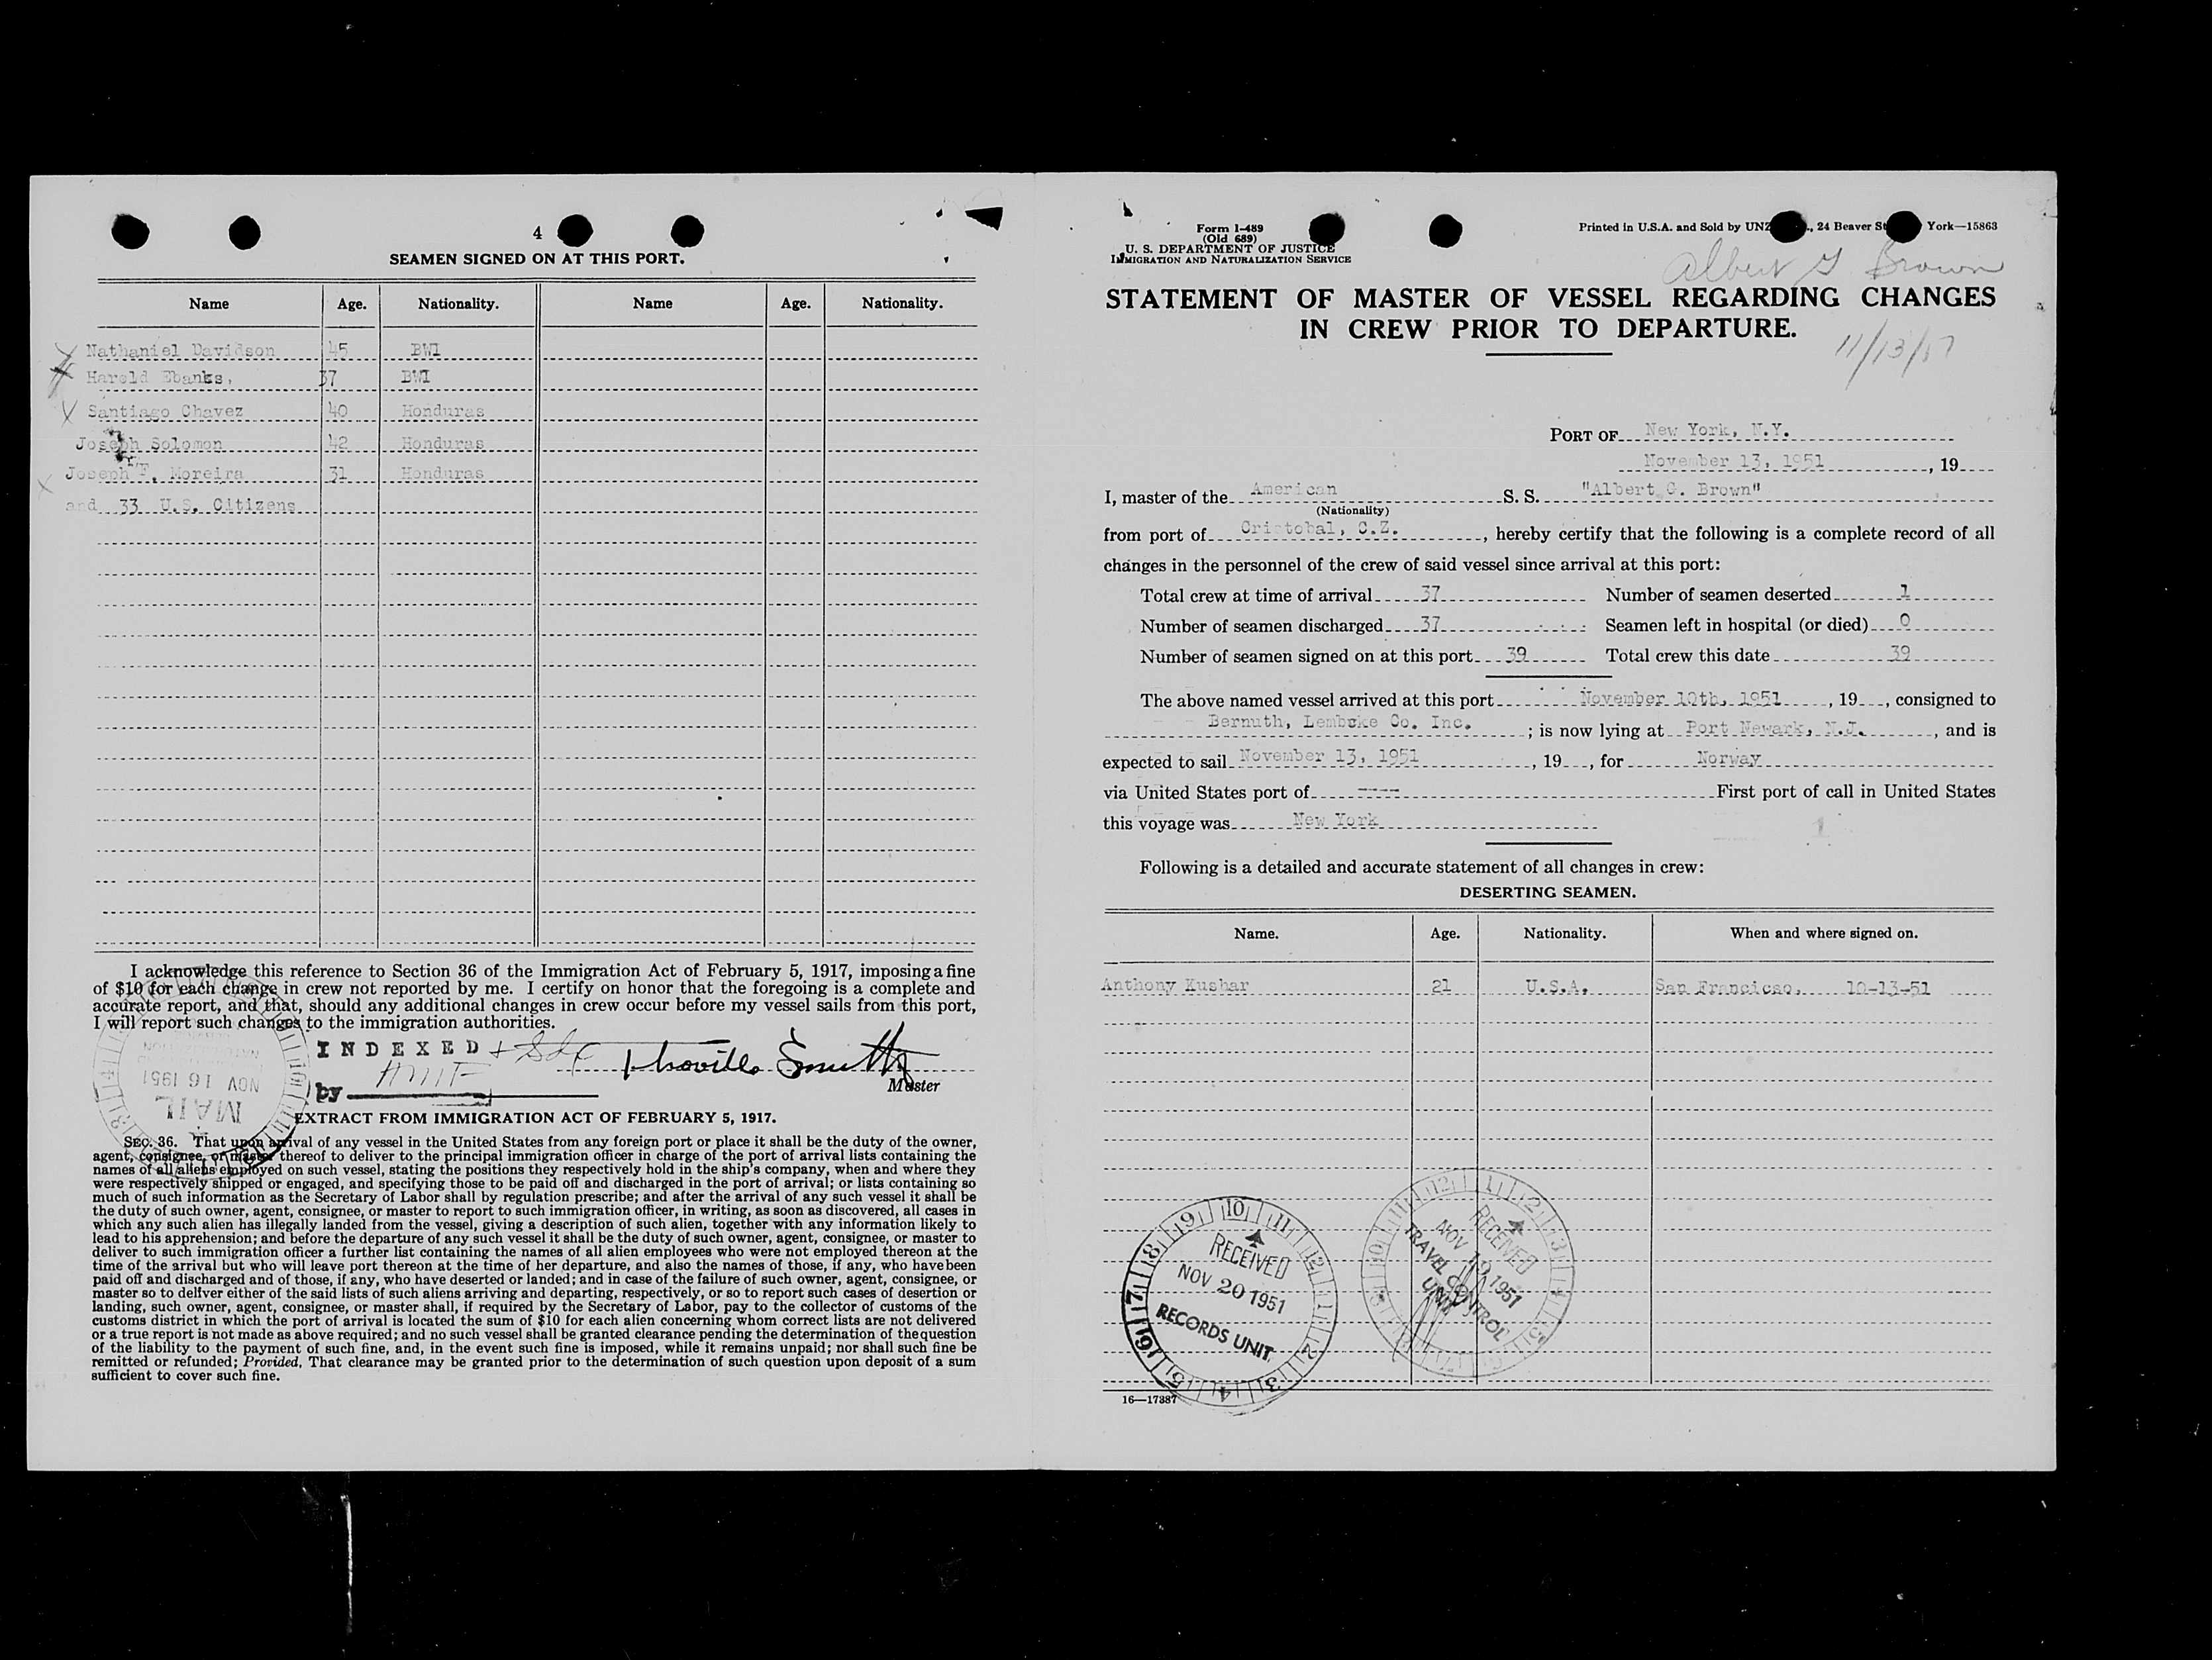 4
SEAMEN SIGNED ON AT THIS PORT.
Name Age. Nationality. Name Age. Nationality.
Nathaniel Davidson 45 BWI
Harold Ebanks, 37 BWI
Santiago Chavez 40 Honduras
Joseph Solomon 42 Honduras
Joseph F. Moreira 31 Honduras
and 33 U.S. Citizens
I acknowledge this reference to Section 36 of the Immigration Act of February 5, 1917, imposing a fine
of $10 for each change in crew not reported by me. I certify on honor that the foregoing is a complete and
accurate report, and that, should any additional changes in crew occur before my vessel sails from this port,
I will report such changes to the immigration authorities.
INDEXED
by
Smith
Master
NOV 16 1951
MAIL
EXTRACT FROM IMMIGRATION ACT OF FEBRUARY 5, 1917.
SEC. 36. That upon arrival of any vessel in the United States from any foreign port or place it shall be the duty of the owner,
agent, consignee, or master thereof to deliver to the principal immigration officer in charge of the port of arrival lists containing the
names of all aliens employed on such vessel, stating the positions they respectively hold in the ship's company, when and where they
were respectively shipped or engaged, and specifying those to be paid off and discharged in the port of arrival; or lists containing so
much of such information as the Secretary of Labor shall by regulation prescribe; and after the arrival of any such vessel it shall be
the duty of such owner, agent, consignee, or master to report to such immigration officer, in writing, as soon as discovered, all cases in
which any such alien has illegally landed from the vessel, giving a description of such alien, together with any information likely to
lead to his apprehension; and before the departure of any such vessel it shall be the duty of such owner, agent, consignee, or master to
deliver to such immigration officer a further list containing the names of all alien employees who were not employed thereon at the
time of the arrival but who will leave port thereon at the time of her departure, and also the names of those, if any, who have been
paid off and discharged and of those, if any, who have deserted or landed; and in case of the failure of such owner, agent, consignee, or
master so to deliver either of the said lists of such aliens arriving and departing, respectively, or so to report such cases of desertion or
landing, such owner, agent, consignee, or master shall, if required by the Secretary of Labor, pay to the collector of customs of the
customs district in which the port of arrival is located the sum of $10 for each alien concerning whom correct lists are not delivered
or a true report is not made as above required; and no such vessel shall be granted clearance pending the determination of the question
of the liability to the payment of such fine, and, in the event such fine is imposed, while it remains unpaid; nor shall such fine be
remitted or refunded; Provided, That clearance may be granted prior to the determination of such question upon deposit of a sum
sufficient to cover such fine.
Form I-489
(Old 689)
U. S. DEPARTMENT OF JUSTICE
IMMIGRATION AND NATURALIZATION SERVICE
Printed in U.S.A. and Sold by UNZ , 24 Beaver St York—15863
Albert G Brown
STATEMENT OF MASTER OF VESSEL REGARDING CHANGES
IN CREW PRIOR TO DEPARTURE.
PORT OF New York, N.Y.
November 13, 1951, 19
I, master of the American S. S. "Albert G. Brown"
(Nationality)
from port of Cristobal, C.Z., hereby certify that the following is a complete record of all
changes in the personnel of the crew of said vessel since arrival at this port:
Total crew at time of arrival 37 Number of seamen deserted 1
Number of seamen discharged 37 Seamen left in hospital (or died) 0
Number of seamen signed on at this port 39 Total crew this date 39
The above named vessel arrived at this port November 10th, 1951, 19, consigned to
Bernuth, Lembcke Co. Inc.; is now lying at Port Newark, N.J., and is
expected to sail November 13, 1951, 19, for Norway
via United States port of ---- First port of call in United States
this voyage was New York
Following is a detailed and accurate statement of all changes in crew:
DESERTING SEAMEN.
Name. Age. Nationality. When and where signed on.
Anthony Kushar 21 U.S.A. San Francicso, 10-13-51
RECEIVED
NOV 20 1951
RECORDS UNIT
RECEIVED
NOV 19 1951
TRAVEL CONTROL
UNIT
16—17387